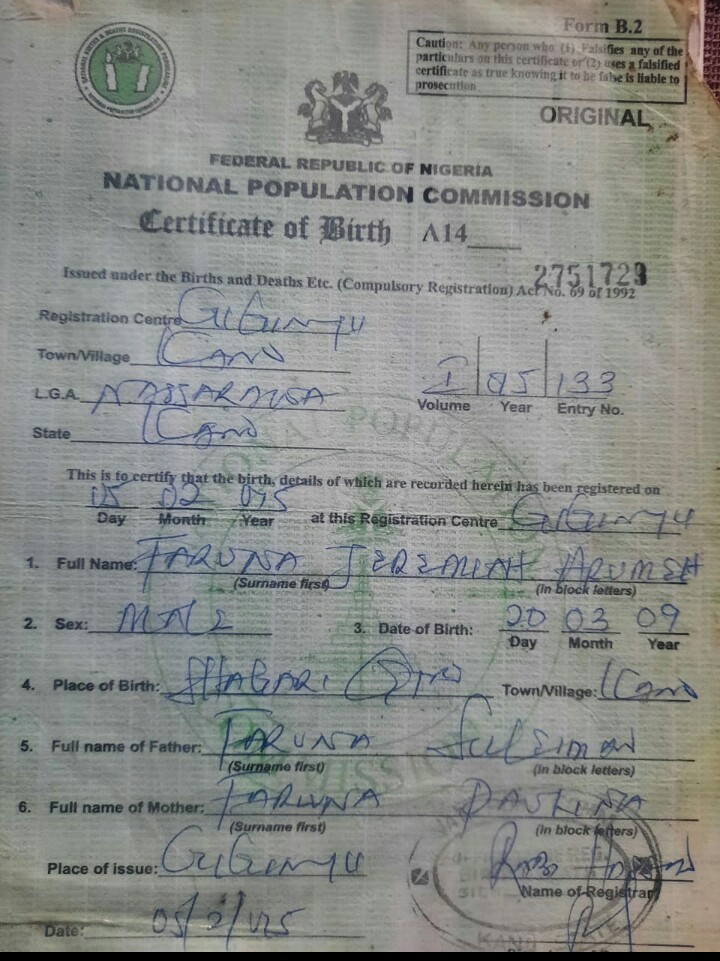 Form B.2
Caution: Any person who (1) Falsifies any of the
particulars on this certificate or (2) uses a falsified
certificate as true knowing it to be false is liable to
prosecution
ORIGINAL
FEDERAL REPUBLIC OF NIGERIA
NATIONAL POPULATION COMMISSION
Certificate of Birth A14
2751723
Issued under the Births and Deaths Etc. (Compulsory Registration) Act No. 69 of 1992
Registration Centre GIGINYU
Town/Village KANO
L.G.A. NASSARAWA
State KANO
I 133
Volume Year Entry No.
This is to certify that the birth, details of which are recorded herein has been registered on
02
Day Month Year at this Registration Centre GIGINYU
1. Full Name: TARUNA JEREMIAH
(Surname first) (in block letters)
2. Sex: MALE 3. Date of Birth: 20 03 09
Day Month Year
4. Place of Birth: SHAGARI Town/Village: KANO
5. Full name of Father: TARUNA
(Surname first) (in block letters)
6. Full name of Mother: TARUNA PAULINA
(Surname first) (in block letters)
Place of issue: GIGINYU
Name of Registrar
Date: